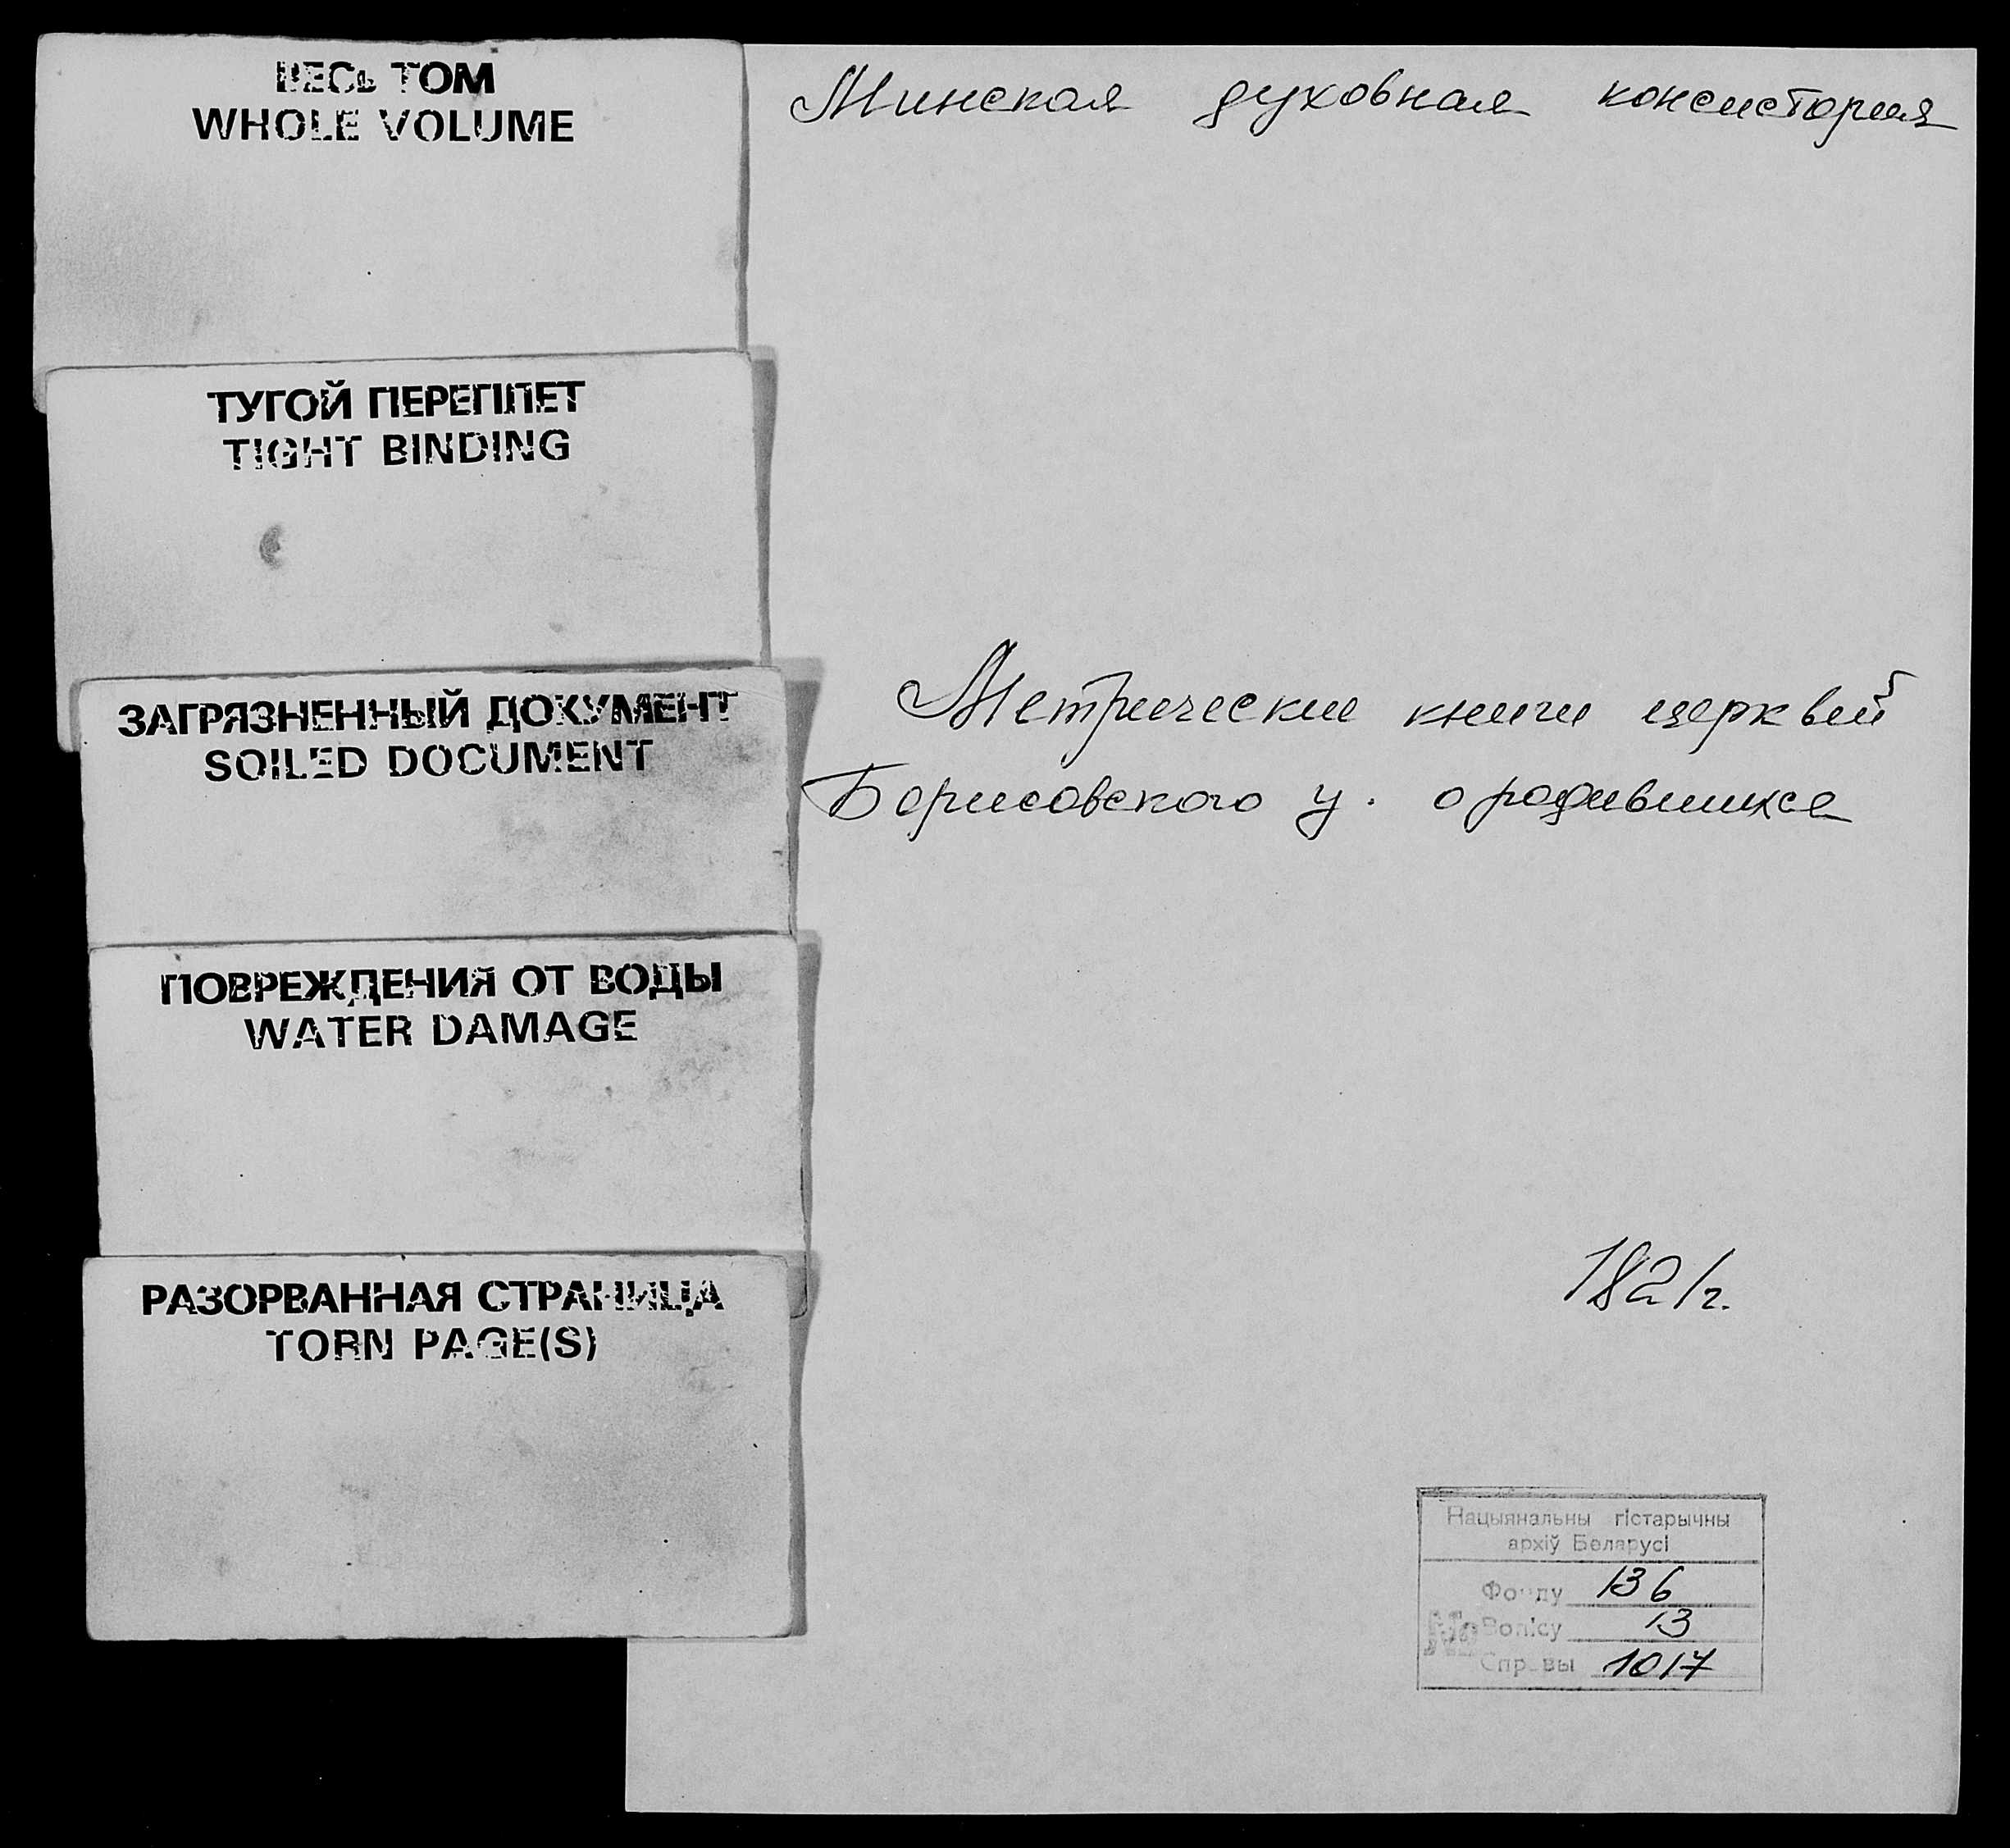 ВЕСЬ ТОМ
WHOLE VOLUME
ТУГОЙ ПЕРЕПЛЕТ
TIGHT BINDING
ЗАГРЯЗНЕННЫЙ ДОКУМЕНТ
SOILED DOCUMENT
ПОВРЕЖДЕНИЯ ОТ ВОДЫ
WATER DAMAGE
РАЗОРВАННАЯ СТРАНИЦА
TORN PAGE(S)
Минская духовная консистория
Метрические книги церквей
Борисовского у. о родившихся
1821г.
Нацыянальны гістарычны
архіў Беларусі
Фонду 136
№ Вопісу 13
Справы 1017